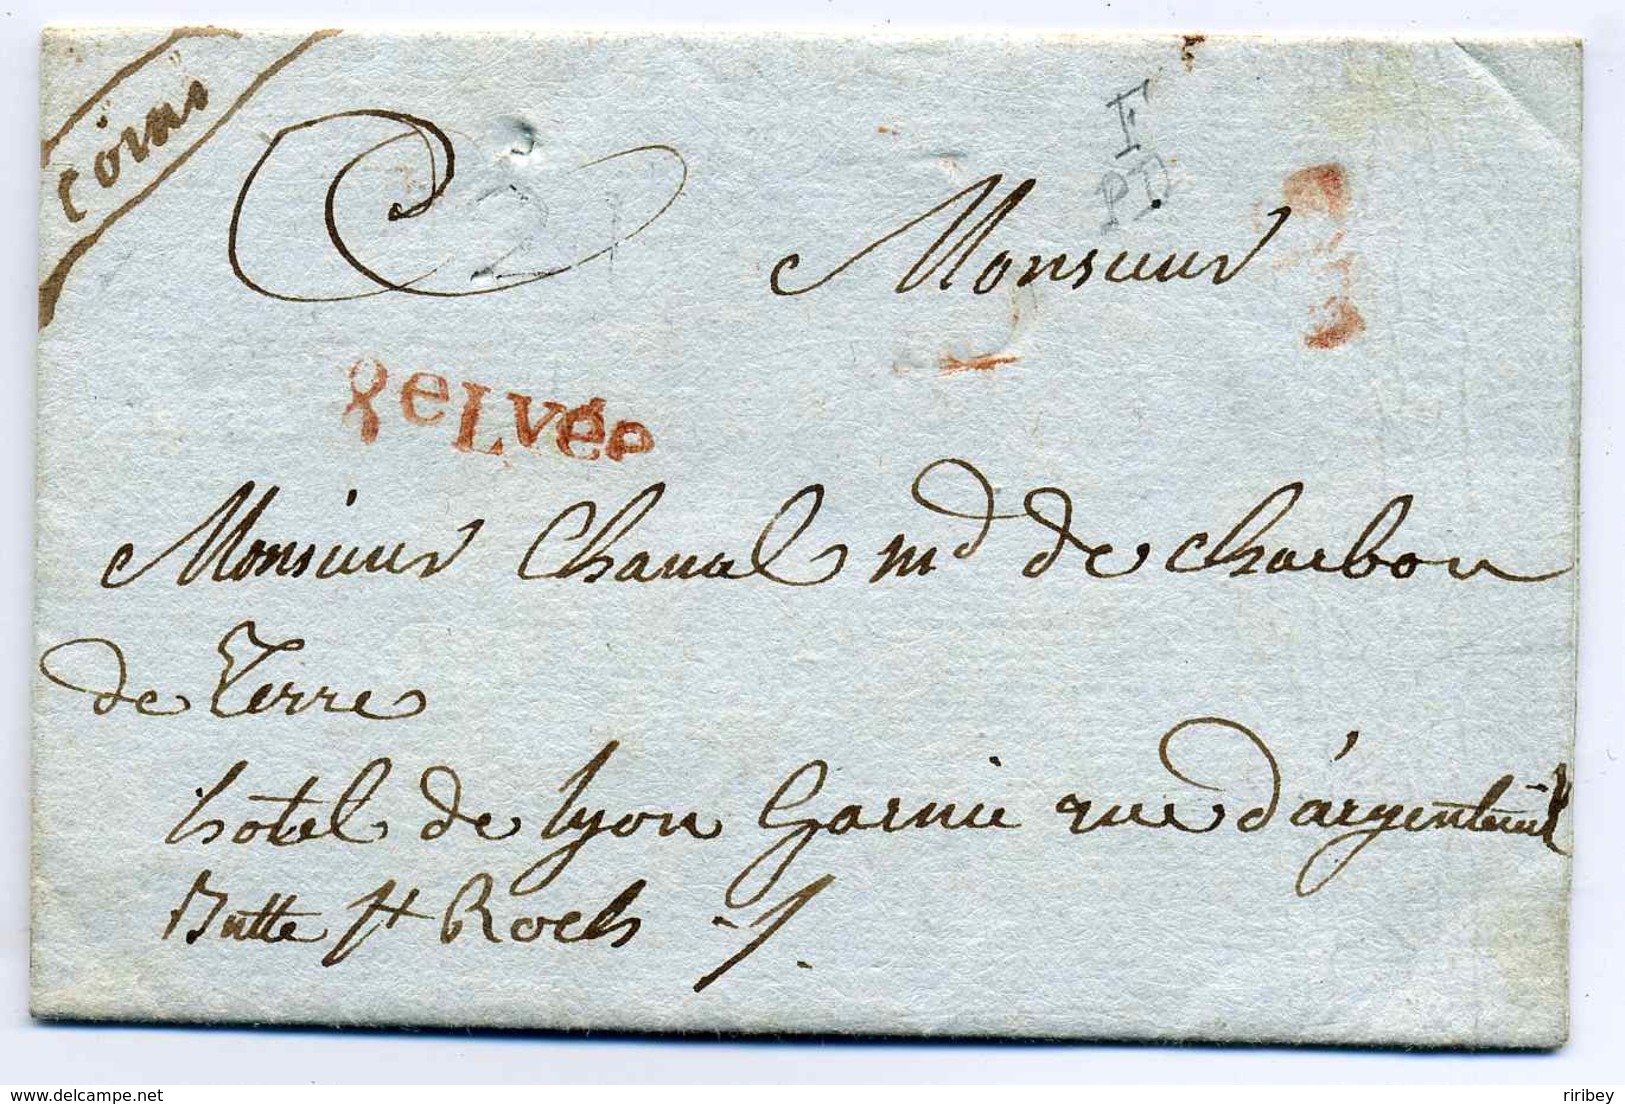 21
F
PD
Monsieur
8eLvée
Monsieur Chaual md de charbon
de Terre
hôtel de lyon Garnie rue d'argenteuil
Butte St Roch
delcampe.net
riribey